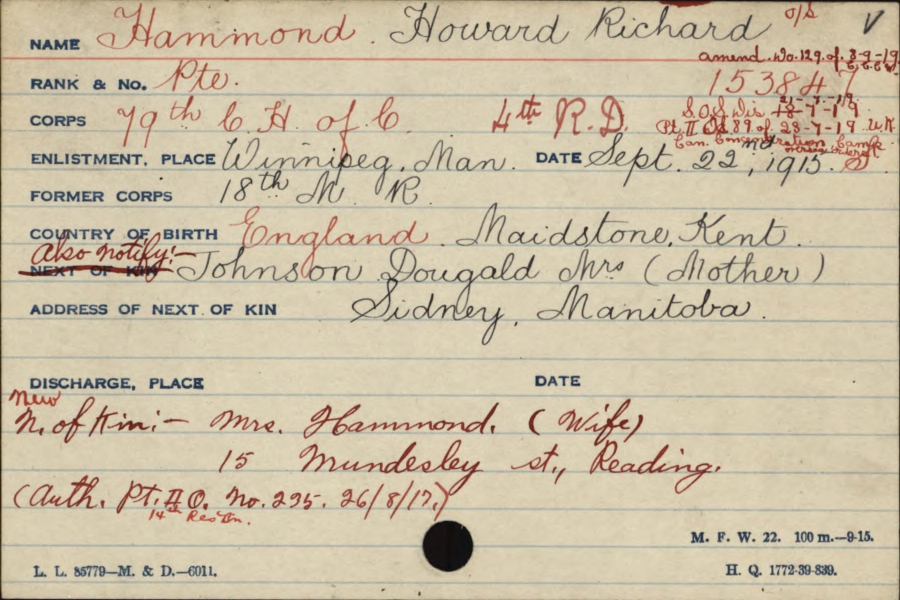 NAME Hammond. Howard Richard o/s V
amend. No. 129 of 8-9-19
RANK & No. Pte. 153847
S.O.S. Dis 18-7-19
CORPS 79th C. H. of C. 4th R.D.
Pt. II O. 89 of 28-7-19 U.K.
Can. Concentration Camp
ENLISTMENT, PLACE Winnipeg, Man. DATE Sept. 22nd, 1915. S
FORMER CORPS 18th M. R.
COUNTRY OF BIRTH England. Maidstone, Kent.
Also notify:-
NEXT OF KIN Johnson Dougald Mrs (Mother)
ADDRESS OF NEXT OF KIN Sidney, Manitoba.
DISCHARGE, PLACE DATE
New
N. of Kin:- Mrs. Hammond. (Wife)
15 Mundesley st., Reading.
(Auth. Pt. II O. No. 235. 26/8/17.)
14th Res Bn.
M. F. W. 22. 100 m.—9-15.
L. L. 85779—M. & D.—6011. H. Q. 1772-39-839.